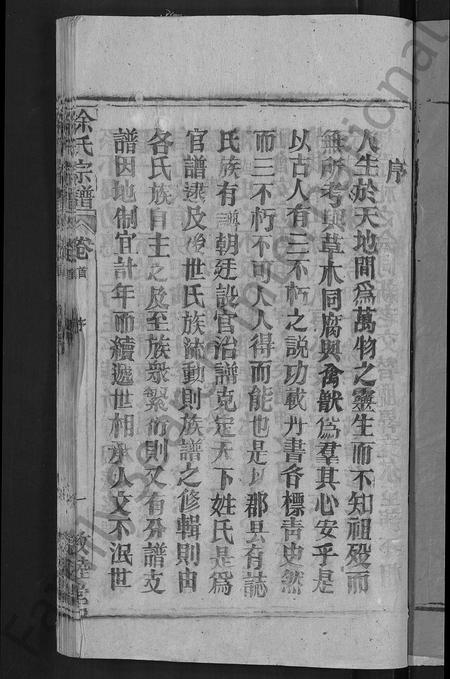 序
人生於天地間爲萬物之靈生而不知祖殁而
無所考與草木同腐與禽獸爲羣其心安乎是
以古人有三不朽之說功載丹書名標青史然
而三不朽不可人人得而能也是以郡縣有誌
氏族有譜朝廷設官治譜克定天下姓氏是爲
官譜逮及後世氏族流動則族譜之修輯則由
各氏族自主之及至族衆繁衍則又有分譜支
譜因地制宜計年而續遞世相承人文不泯世
余氏宗譜 卷首 序 一 敦睦堂